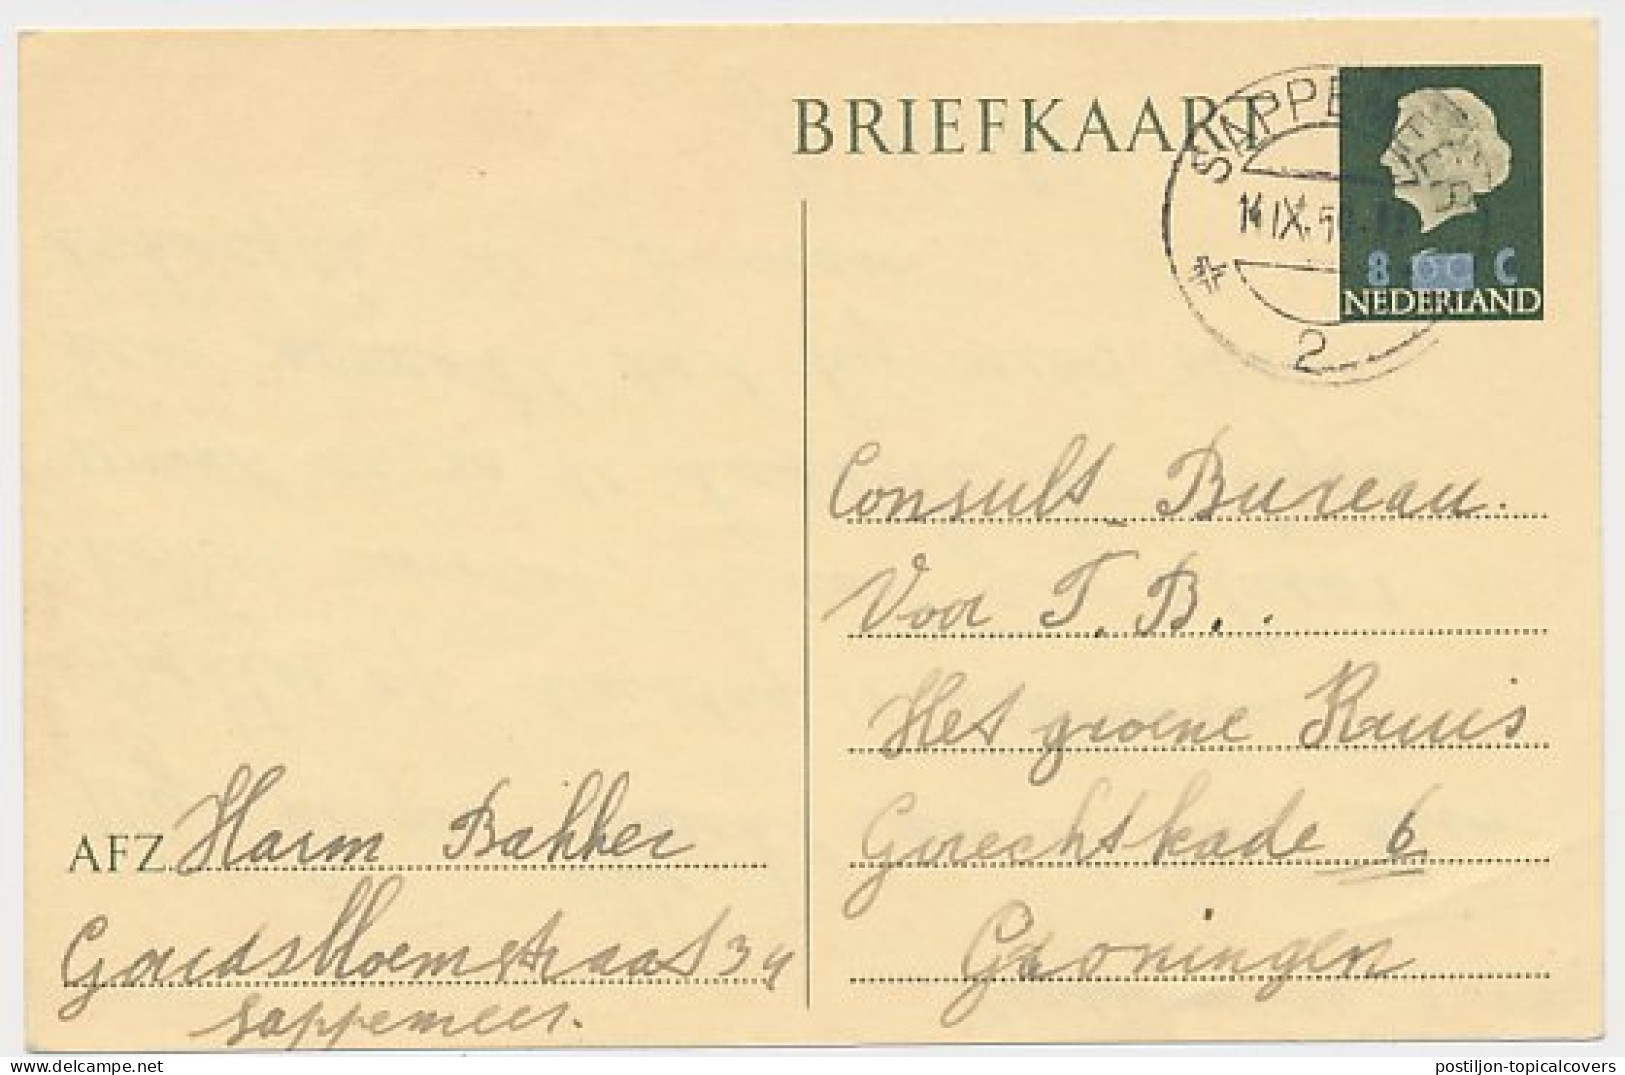 BRIEFKAART
SAPPEMEER
14 IX.5
2
8 C
NEDERLAND
Consult Bureau.
Voor T.B..
Het groene Kruis
Gorechtkade 6
Groningen
AFZ. Harm Bakker
Goudsbloemstraat 34
Sappemeer.
postiljon-topicalcovers